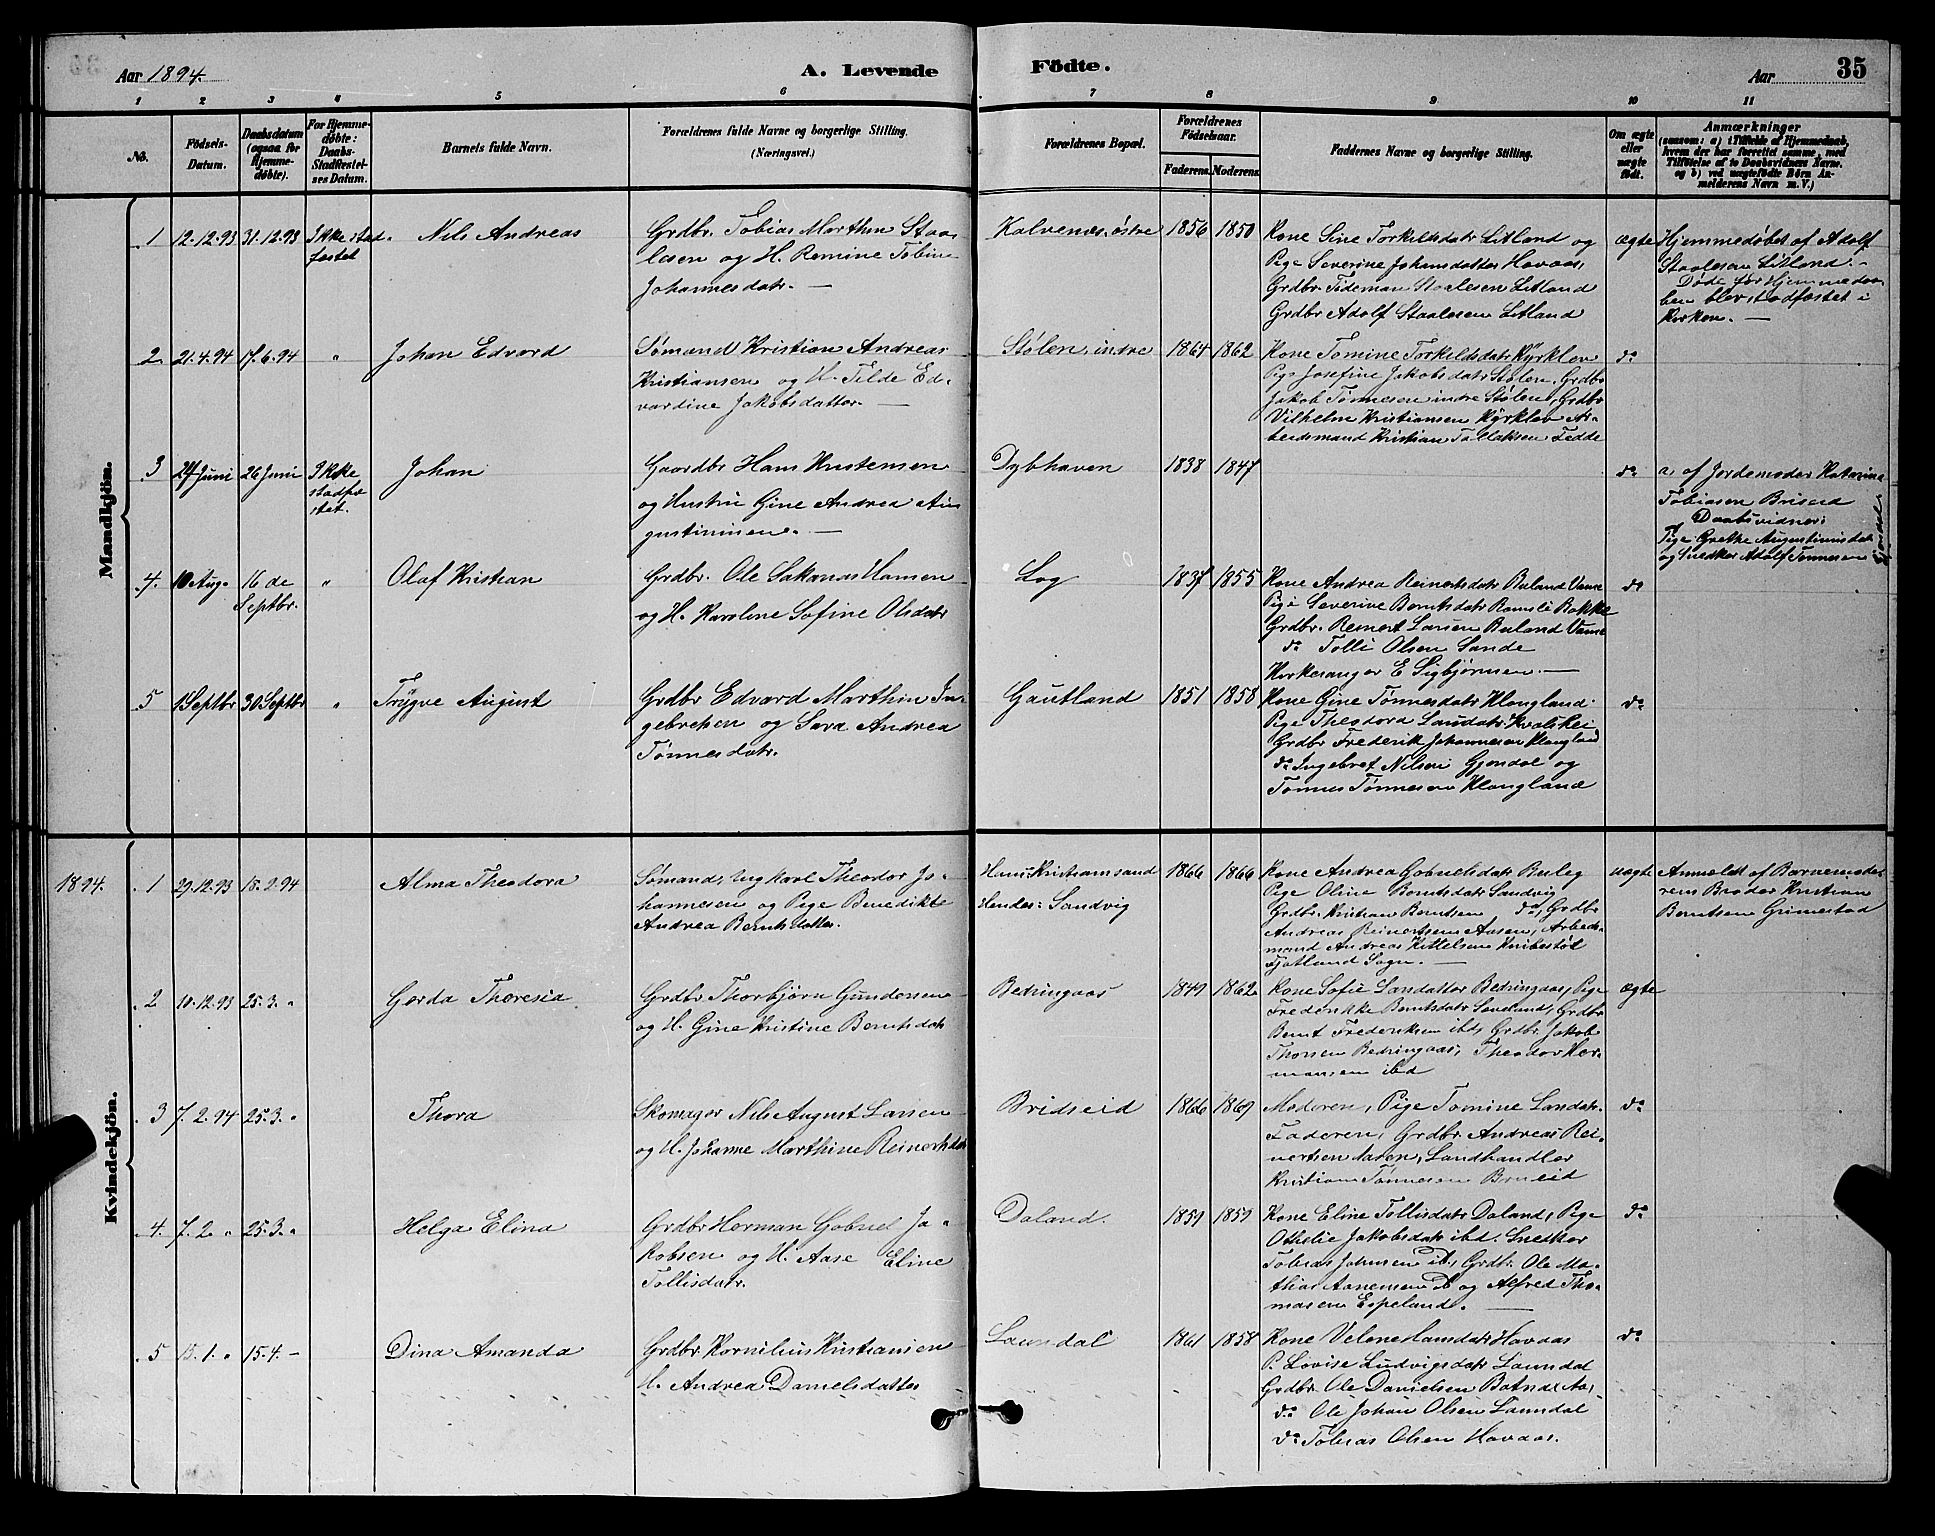 Aar 1894.
A. Levende
Födte.
Aar
35
1 2 3 4 5 6 7 8 9 10 11
No.
Födsels-
Datum.
Daabsdatum
(ogsaa for
Hjemme-
døbte).
For Hjemme-
døbte:
Daabs-
Stadfæstel-
ses Datum.
Barnets fulde Navn.
Forældrenes fulde Navne og borgerlige Stilling.
(Næringsvei.)
Forældrenes Bopæl.
Forældrenes
Fødselsaar.
Faderens. Moderens.
Faddernes Navne og borgerlige Stilling.
Om ægte
eller
uægte
født.
Anmærkninger
(saasom: a) i Tilfælde af Hjemmedaab,
hvem der har forrettet samme, med
Tilføielse af to Daabsvidners Navne.
og b) ved uægtefødte Børn An-
melderens Navn m. V.)
Mandkjön.
1 12.12.93 31.12.93 Ikke stad-
fæstet
Nils Andreas
Grdbr. Tobias Marthin Staa-
lesen og H. Remine Tobine
Johannesdatr. —
Kalvenes, østre
1856 1850
Kone Sine Torkildsdatr Litland og
Pige Severine Johansdatter Hovaas,
Grdbr Tideman Staalesen Litland
Grdbr Adolf Staalesen Litland
ægte
Hjemmedøbt af Adolf
Staalesen Litland. -
Døde før Hjemmedaa-
ben blev stadfæstet i
Kirken. —
2 21.4.94 17.6.94 "
Johan Edvard
Sømand Kristian Andreas
Kristiansen og H. Tilde Ed-
vardine Jakobsdatter. —
Stølen, indre
1864 1862
Kone Tomine Torkildsdatr Kyrklev
Pige Josefine Jakobsdatr Stølen, Grdbr
Jakob Tønnesen indre Stølen, Grdbr
Vilhelm Kristiansen Kyrklev Ar-
beidsmand Kristian Tallaksen Fedde
do
3 24 Juni 26 Juni Ikke
stadfæ
stet.
Johan
Gaardbr Hans Kristensen
og Hustru Gine Andrea Au-
gustinusen. —
Dybhaven
1838 1847
do
a, af Jordemoder Katarina
Tobiasen Briseid
Daabsvidner:
Pige Grethe Augustinusdatr
og Snedker Adolf Tønnesen
4. 10 Aug. 16 de
Septbr. "
Olaf Kristian
Grdbr. Ole Sakarias Hansen
og H. Karoline Sofine Olsdatr
Log
1837 1855
Kone Andrea Reinertsdatr Buland Vanse
Pige Severine Berntsdatr Ramsli Bakke
Grdbr. Reinert Larsen Buland Vanse
do Tolli Olsen Sande
Kirkesanger E Sigbjørnsen. —
do
5 1 Septbr 30 Septbr "
Trygve August
Grdbr Edvard Marthin In-
gebretsen og Sara Andrea
Tønnesdatr.
Gautland
1851 1858
Kone Gine Tønnesdatr Klungland
Pige Theodora Larsdatr Kvalskei
Grdbr Frederik Johannesen Klungland
do Ingebret Nilsen Gjendal og
Tønnes Tønnesen Klungland
do
Kvindekjön.
1894. 1 29.12.93 18.2.94
Alma Theodora
Sømand, Ung karl Theodor Jo-
hannesen og Pige Benedikte
Andrea Berntsdatter.
Hans: Kristianssand
Hendes: Sandvig
1866 1866
Kone Andrea Gabrielsdatr Buleg
Pige Oline Berntsdatr Sandvig
Grdbr. Kristian Berntsen do, Grdbr
Andreas Reinertsen Aasen, Arbeids-
mand Andreas Kittelsen Knibestøl
Fjotland Sogn. —
uægte
Anmeldt af Barnemode-
rens Broder Kristian
Berntsen Grimestad
2 10.12.93 25.3. "
Gerda Theresia
Grdbr Thorbjørn Gundersen
og H. Gine Kristine Berntsdatr
Bedringaas
1849 1862
Kone Sofie Larsdatter Bedringaas, Pige
Frederikke Berntsdatr Saveland, Grdbr
Bernt Frederiksen ibd, Grdbr. Jakob
Thorsen Bedringaas, Theodor Her-
mansen ibd
ægte
3 7.2.94 25.3. "
Thora
Skomager Nils August Larsen
og H. Johanne Marthine Reinertsdatr
Bridseid
1866 1869
Moderen, Pige Tomine Larsdatr.
Faderen, Grdbr Andreas Rei-
nertsen Aasen, Landhandler
Kristian Tønnesen Briseid
do
4. 7.2 " 25.3. "
Helga Elina
Grdbr Herman Gabriel Ja-
kobsen og H. Aase Eline
Tollisdatr.
Daland.
1859 1859
Kone Eline Tollisdatr Daland, Pige
Othelie Jakobsdatr ibd. Snedker
Tobias Johnsen ib, Grdbr. Ole Ma-
thias Aanensen ib og Alfred Tho-
masen Espeland. —
do
5 15.1. " 15.4. -
Dina Amanda
Grdbr Kornilius Kristiansen
H. Andrea Danielsdatter
Laundal
1861 1858
Kone Velene Hansdatr Hovaas
P. Lovise Ludvigsdatr Laundal
Grdbr. Ole Danielsen Botned Aa,
do Ole Johan Olsen Laundal
do Tobias Olsen Hovaas.
do